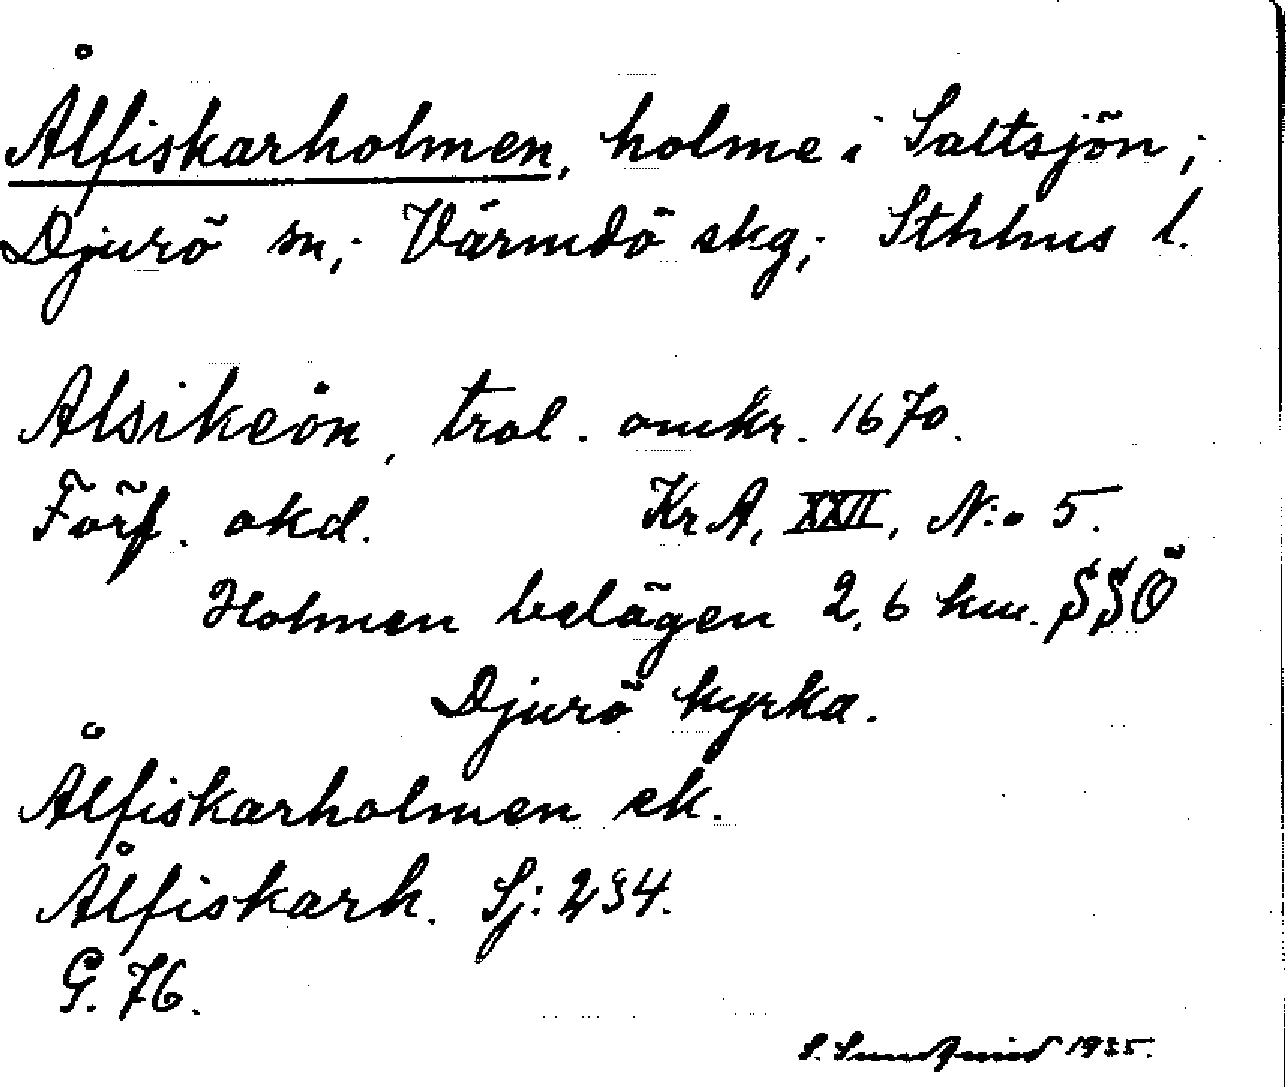 Ålfiskarholmen, holme i Saltsjön;
Djurö sn; Värmdö skg; Sthlms l.
Alsikeön, trol. omkr. 1670.
Förf. okd. Kr A, XXII, N:o 5.
Holmen belägen 2,6 km. SSÖ
Djurö kyrka.
Ålfiskarholmen ek.
Ålfiskarh. Sj: 234.
G. 76.
S. Sundqvist 1935.